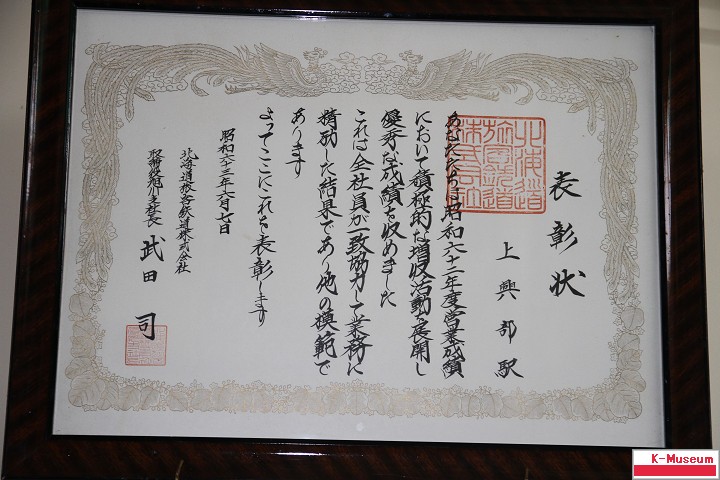 表彰状
上興部駅
あなたたちは昭和六十二年度営業成績
において積極的な増収活動を展開し
優秀な成績を収めました
これは全社員が一致協力して業務に
精励した結果であり他の模範で
あります
よってここにこれを表彰します
昭和六十三年六月七日
北海道旅客鉄道株式会社
取締役旭川支社長 武田 司
北海道
旅客鉄道
株式会社
K-Museum